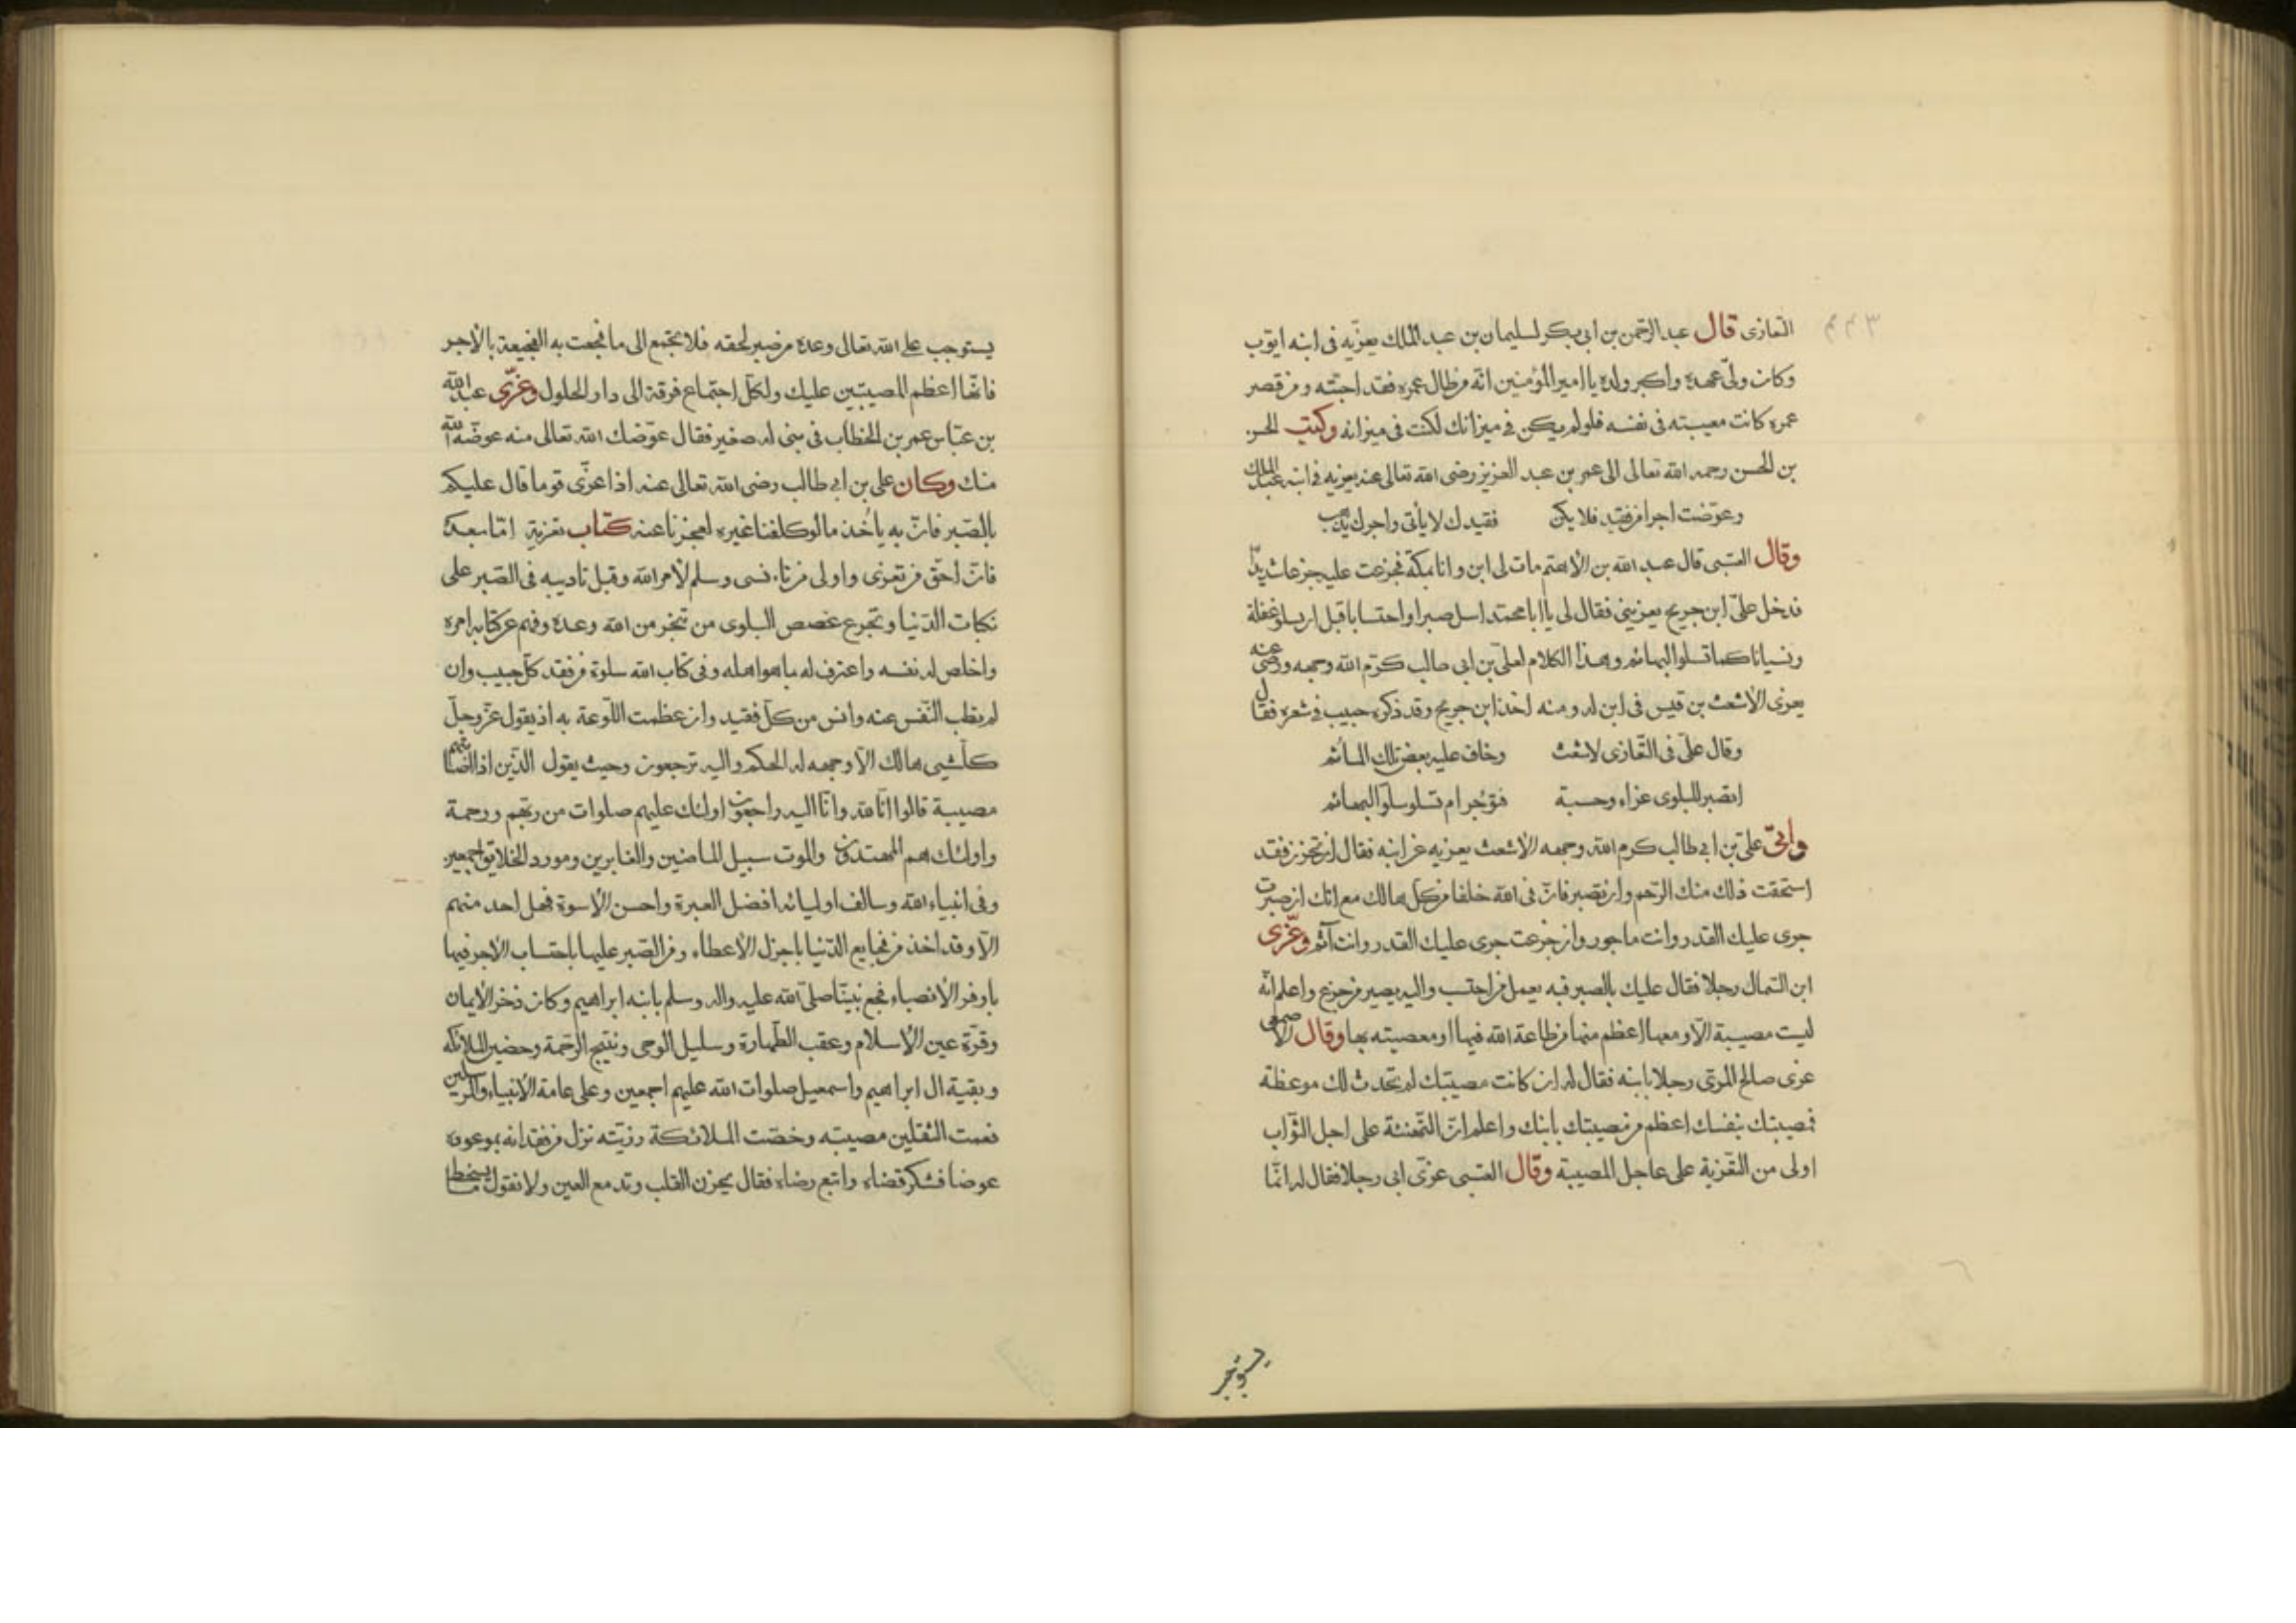 التعازى قال عبد الرحمن بن ابى بكر لسليمان بن عبد الملك يعزيه فى ابنه ايوب
وكان ولىّ عهده واكبر ولده يا امير المؤمنين انه من طال عمره فقد احبته ومن قصر
عمره كانت مصيبته فى نفسه فلو لم يكن فى ميزانك لكنت فى ميزانه وكتب الحسن
بن الحسن رحمه الله تعالى الى عمر بن عبد العزيز رضى الله تعالى عنه يعزيه فى ابنه عبد الملك
وعوّضت اجرا من فقيد فلا يكن فقيدك لا يأتى واجرك يذهب
وقال العتبى قال عبد الله بن الأهتم مات لى ابن وانا بمكة فجزعت عليه جزعا شديدا
فدخل علىّ ابن جريح يعزينى فقال لى يا ابا محمد اسل صبرا واحتسابا قبل ان تسلو غفلة
ونسيانا كما تسلو البهائم وهذا الكلام لعلىّ بن ابى طالب كرّم الله وجهه ورضى عنه
يعزى الأشعث بن قيس فى ابن له ومنه اخذ ابن جريح وقد ذكره حبيب فى شعره فقال
وقال علىّ فى التعازى لاشعث وخاف عليه بعض تلك المآثم
اتصبر للبلوى عزاء وحسبة فتؤجر ام تسلو سلوّ البهائم
واتى علىّ بن ابى طالب كرم الله وجهه الأشعث يعزيه عن ابنه فقال ان تحزن فقد
استحقت ذلك منك الرحم وان تصبر فانّ فى الله خلفا من كل هالك مع انك ان صبرت
جرى عليك القدر وانت ماجور وان جزعت جرى عليك القدر وانت آثم وعزّى
ابن السماك رجلا فقال عليك بالصبر فبه يعمل من احتسب واليه يصير من جزع واعلم انّه
ليست مصيبة الّا ومعها اعظم منها من طاعة الله فيها او معصيته بها وقال الأصمعى
عزى صالح المرّى رجلا بابنه فقال له ان كانت مصيبتك لم تحدث لك موعظة
فمصيبتك بنفسك اعظم من مصيبتك بابنك واعلم انّ التهنئة على اجل الثواب
اولى من التعزية على عاجل المصيبة وقال العتبى عزّى ابى رجلا فقال له انما
يستوجب
يستوجب على الله تعالى وعده من صبر لحقه فلا تجمع الى ما فجعت به الفجيعة بالأجر
فانّها اعظم المصيبتين عليك ولكلّ اجتماع فرقة الى دار الحلول وعزّى عبد الله
بن عبّاس عمر بن الخطاب فى بنى له صغير فقال عوّضك الله تعالى منه ما عوّضه الله
منك وكان على بن ابى طالب رضى الله تعالى عنه اذا عزّى قوما قال عليكم
بالصّبر فانّ به يأخذ ما لو كلفنا غيره لعجزنا عنه كتاب تعزية امّا بعد
فانّ احقّ من تعزى واولى من تاسى وسلم لأمر الله وقبل تاديبه فى الصّبر على
نكبات الدّنيا وتجرع غصص البلوى من تنجز من الله وعده وفهم عن كتابه امره
واخلص له نفسه واعترف له بما هو اهله وفى كتاب الله سلوة من فقد كلّ حبيب وان
لم يطب النّفس عنه وانس من كلّ فقيد وان عظمت اللّوعة به اذ يقول عزّ وجلّ
كلّ شيى هالك الّا وجهه له الحكم واليه ترجعون وحيث يقول الذين اذا اصابتهم
مصيبة قالوا انّا لله وانّا اليه راجعون اولئك عليهم صلوات من ربهم ورحمة
واولئك هم المهتدون والموت سبيل الماضين والغابرين ومورد الخلايق اجمعين
وفى انبياء الله وسالف اوليائه افضل العبرة واحسن الأسوة فهل احد منهم
الّا وقد اخذ من فجايع الدّنيا باجزل الأعطاء ومن الصّبر عليها باحتساب الأجر فيها
باوفر الأنصباء فجع نبيّنا صلى الله عليه واله وسلم بابنه ابراهيم وكان ذخر الأيمان
وقرّة عين الأسلام وعقب الطّهارة وسليل الوحى ونتيج الرّحمة وحضين الملائكه
وبقية ال ابراهيم واسمعيل صلوات الله عليهم اجمعين وعلى عامة الأنبياء والمرسلين
فعمت الثقلين مصيبته وخصّت الملائكة رزيّته نزل من فقدانه بموعود
عوضا فشكر قضاه واتبع رضاه فقال يحزن القلب وتدمع العين ولا نقول ما يسخط